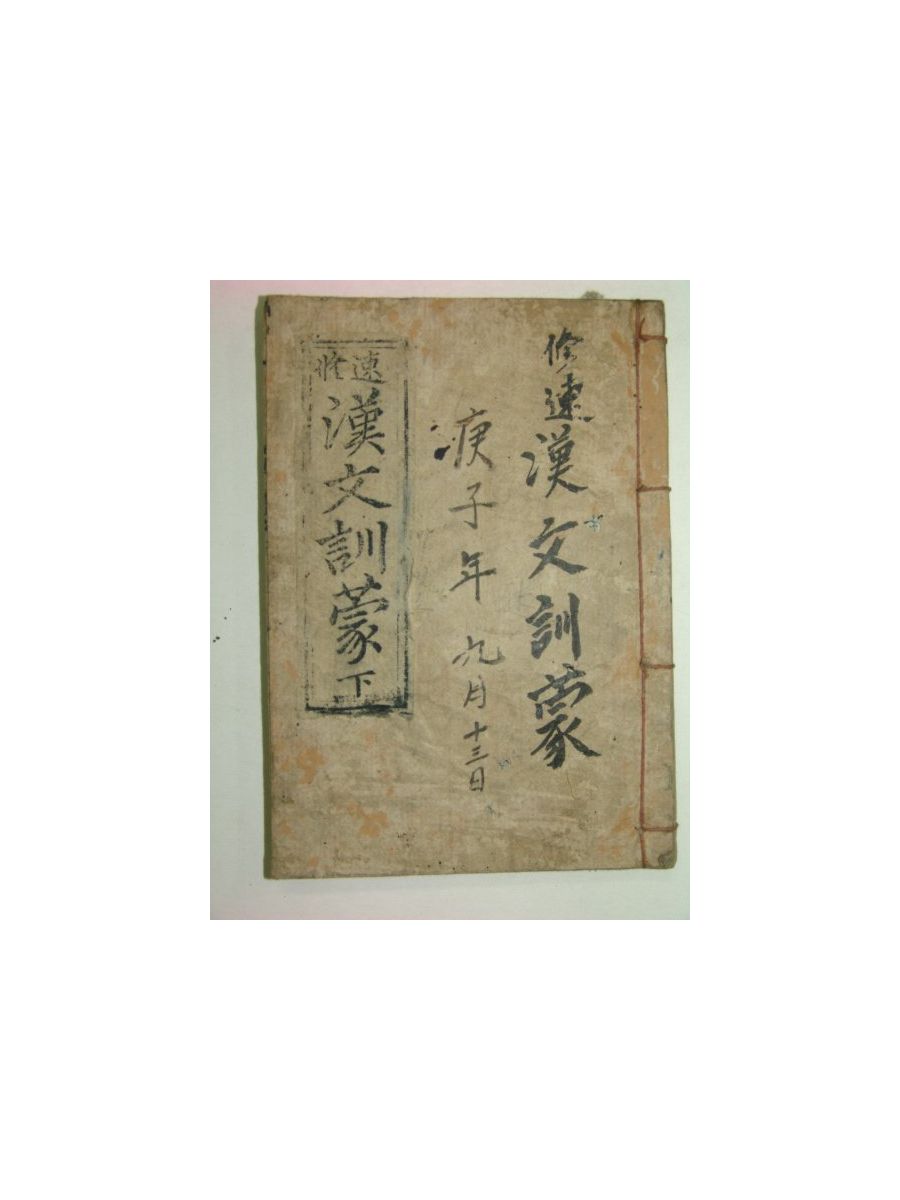 修速漢文訓蒙
庚子年 九月十三日
速修
漢文訓蒙 下